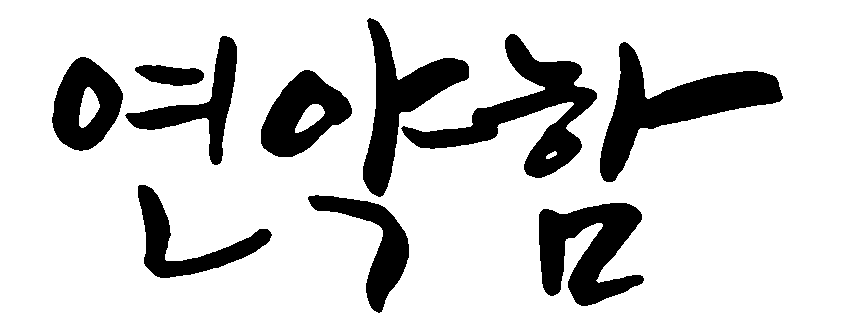 연약함